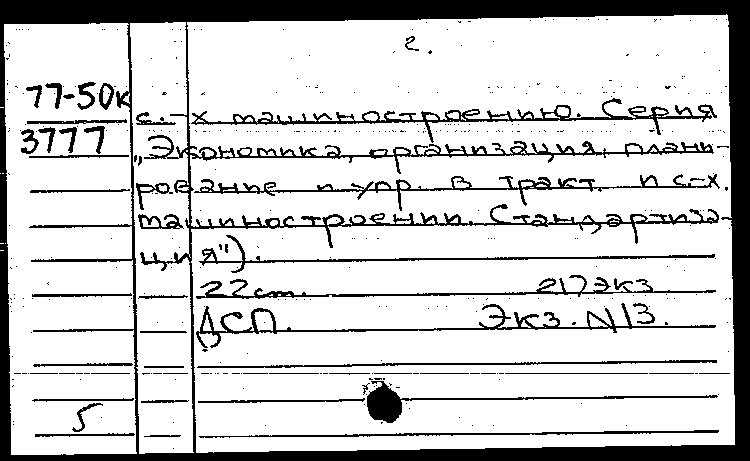 2.
77-50к
3777
с.-х машиностроению. Серия
„Экономика, организация, плани-
рование и упр. в тракт. и с-х.
машиностроении. Стандартиза-
ция").
22 см. 217 экз
ДСП. Экз. N13.
5